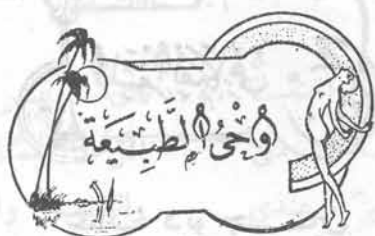 وَحْىُ الطَّبِيَعَة